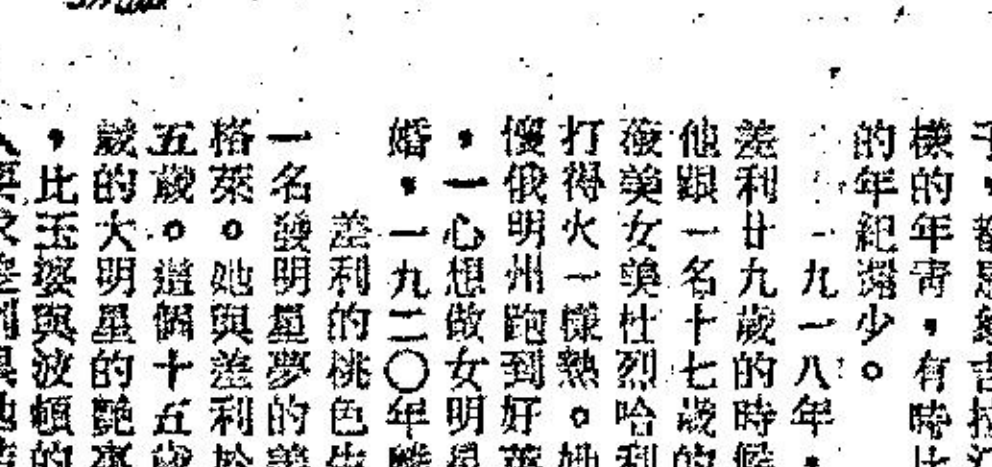 樣的年青，有時比
的年紀還少。
一九一八年，
差利廿九歲的時候
他跟一名十七歲的
美女美杜烈哈利
打得火一樣熱。她
俄明州跑到好萊
，一心想做女明星
婚，一九二〇年離
差利的桃色生
一名發明星夢的美
格萊。她與差利於
五歲。這個十五歲
歲的大明星的艷事
，比玉婆與波頓的